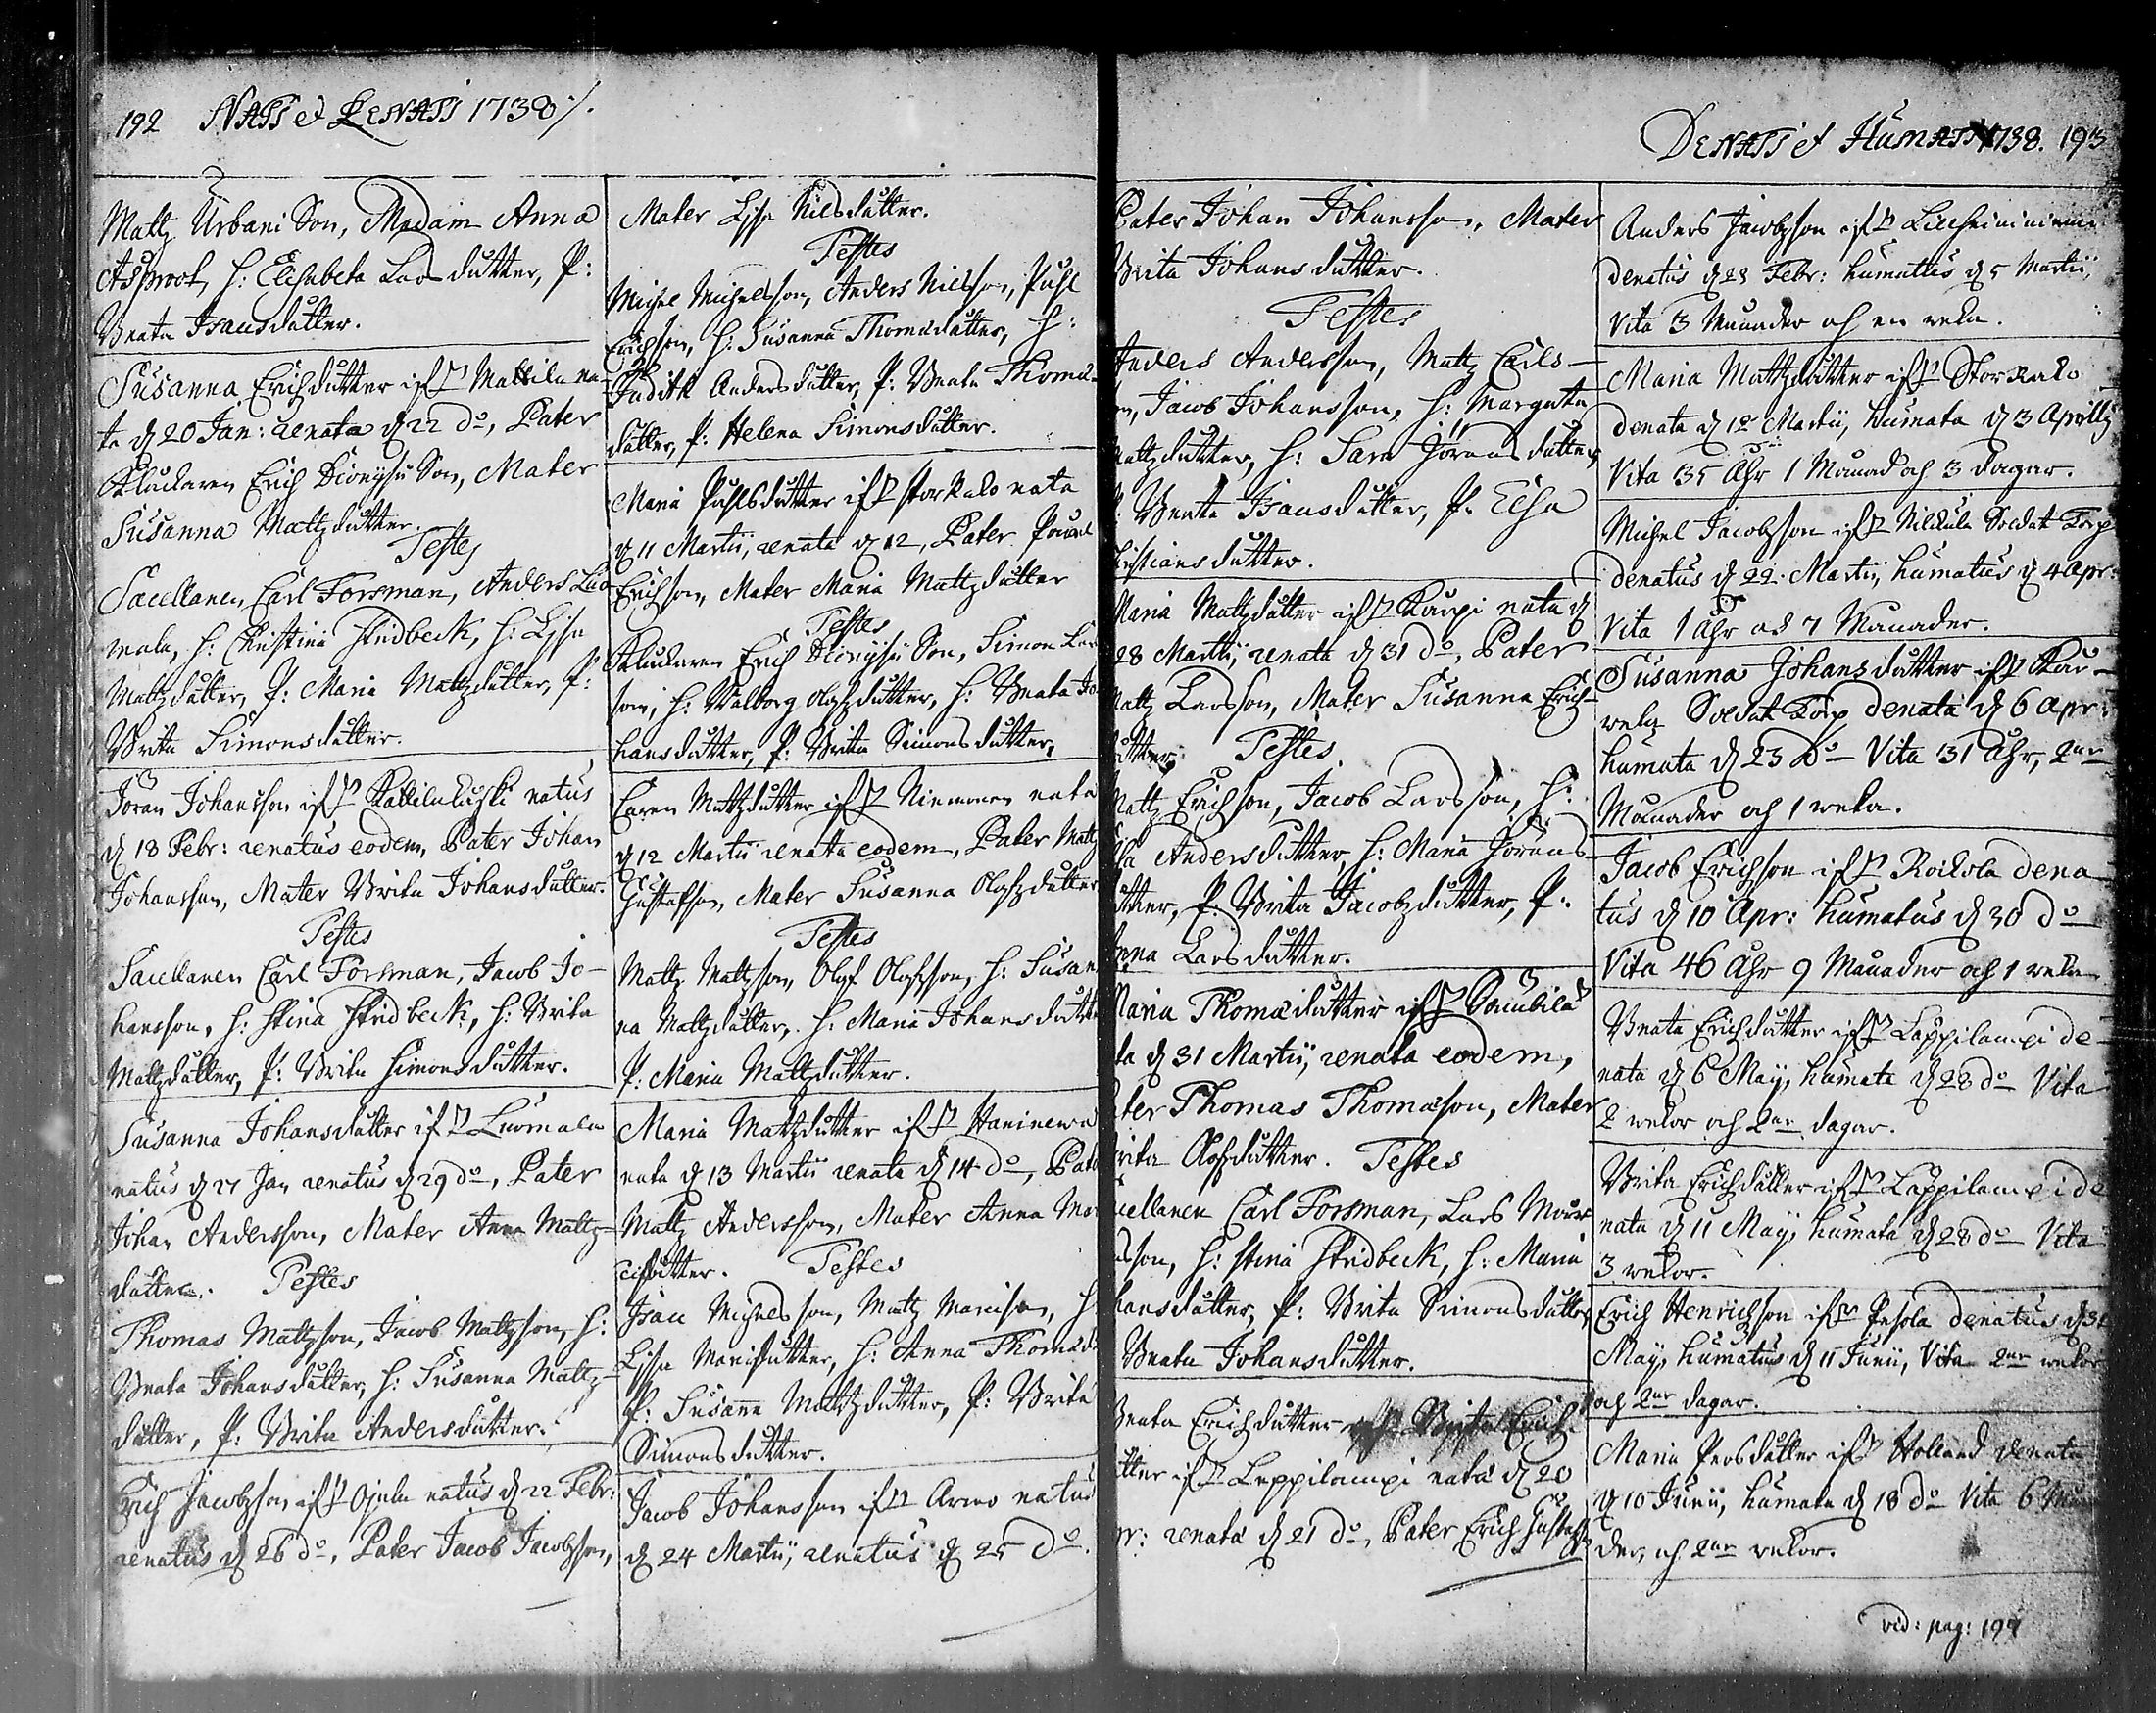 192 NATI et RENATI 1738 /.
Mattz Urbani Son, Madam Anna
Asproot, H: Elisabeta Larsdutter, P:
Beata Isansdutter.
Susanna Erichdutter ifr: Mattila na-
ta d 20 Jan: renata d 22 do, Pater
Kluckaren Erich Dionysii Son, Mater
Susanna Mattzdutter.
Testes
Sacellanen Carl Forsman, Anders Luo
mala, H: Christina Hedbeck, H: Lisa
Mattzdutter, P: Maria Mattzdutter, P:
Brita Simonsdutter.
Jöran Johansson ifr: natus
d 18 Febr: renatus eodem, Pater Johan
Johansson, Mater Brita Johansdutter.
Testes
Sacellanen Carl Forsman, Jacob Jo-
hansson, H: Stina Hedbeck, H: Brita
Mattzdutter, P: Brita Simonsdutter.
Susanna Johansdutter ifr: Luomala
natus d 27 Jan renatus d 29 do, Pater
Johan Andersson, Mater Anna Mattz-
dutter. Testes
Thomas Mattzson, Jacob Mattzson, H:
Beata Johansdutter, H: Susanna Mattz-
dutter, P: Brita Andersdutter.
Erich Jacobzson ifr: Ojala natus d 22 Febr:
renatus d 26 do, Pater Jacob Jacobzson,
Mater Lisa Nilsdutter.
Testes
Michel Michelsson, Anders Nilsson, Påhl
Erichson, H: Susanna Thomædutter, H:
Judith Andersdutter, P: Beata Thomæ-
dutter, P: Helena Simonsdutter.
Maria Påhlsdutter ifr: Storkalo nata
d 11 Martii, renata d 12, Pater Påwel
Erichson, Mater Maria Mattzdutter
Testes
Kluckaren Erich Dionysii Son, Simon Lars
son, H: Walborg Olofzdutter, H: Beata Jo
hansdutter, P: Brita Simonsdutter.
Caren Mattzdutter ifr: Niemonen nata
d 12 Martii renata eodem, Pater Mattz
Gustafson, Mater Susanna Olofzdutter
Testes
Mattz Mattzson, Olof Olofzson, H: Susan
na Mattzdutter, H: Maria Johansdutter
P: Maria Mattzdutter.
Maria Mattzdutter ifr: Haninewa
nata d 13 Martii renata d 14 do, Pater
Mattz Andersson, Mater Anna Mar
cisdutter. Testes
Isac Michelsson, Mattz Marcisson, H
Lisa Marcisdutter, H: Anna Thomæd
P: Susanna Mattzdutter, P: Brita
Simonsdutter.
Jacob Johansson ifr: Arwo natus
d 24 Martii, renatus d 25 do.
DENATI et HUMATI 1738. 193
Pater Johan Johansson, Mater
Brita Johansdutter.
Testes
Anders Andersson, Mattz Carls-
n, Jacob Johansson, H: Margreta
Mattzdutter, H: Sara Jöransdutter,
P: Beata Isansdutter, P: Elsa
Christiansdutter.
Maria Mattzdutter ifr: Kauppi nata d
28 Martii, renata d 31 do, Pater
Mattz Larsson, Mater Susanna Erich-
dutter. Testes.
Mattz Erichson, Jacob Larsson, H:
Andersdutter, H: Maria Jörans-
dutter, P: Brita Jacobzdutter, P:
Larsdutter.
Maria Thomædutter ifr:
ta d 31 Martii, renata eodem,
ater Thomas Thomæson, Mater
Brita Olofzdutter. Testes
Sacellanen Carl Forsman, Lars
son, H: Stina Hedbeck, H: Maria
hansdutter, P: Brita Simonsdutter,
Beata Johansdutter.
Beata Erichdutter och Brita Erich
utter ifr: Lappilampi nata d 20
pr: renata d 21 do, Pater Erich Gustafs
Anders Jacobzson ifr:
denatus d 23 Febr: humatus d 5 Martii,
Vita 3 Månader och en weka.
Maria Mattzdutter ifr: Storkalo
denata d 12 Martii, humata d 3 Aprilis
Vita 35 Åhr 1 Månad och 3 dagar.
Michel Jacobzson ifr: Nikkula Soldat Torp
denatus d 22 Martii, humatus d 4 Apr:
Vita 1 Åhr och 7 Månader.
Susanna Johansdutter ifr: Kau-
wela Soldat Torp denata d 6 Apr:
humata d 23 do Vita 31 Åhr, 2ne
Månader och 1 weka.
Jacob Erichson ifr: Roikola dena
tus d 10 Apr: humatus d 30 do
Vita 46 Åhr 9 Månader och 1 weka
Beata Erichdutter ifr: Lappilampi de-
nata d 6 Maij, humata d 28 do Vita
2 wekor och 2ne dagar.
Brita Erichdutter ifr: Lappilampi de
nata d 11 Maij, humata d 28 do Vita
3 wekor.
Erich Henrichson ifr: Pesola denatus d 31
Maij, humatus d 11 Junii, Vita 2ne wekor
och 2ne dagar.
Maria Persdutter ifr: Holland denata
d 10 Junii, humata d 18 do Vita 6 Måna
der, och 2ne wekor.
vid: pag: 199